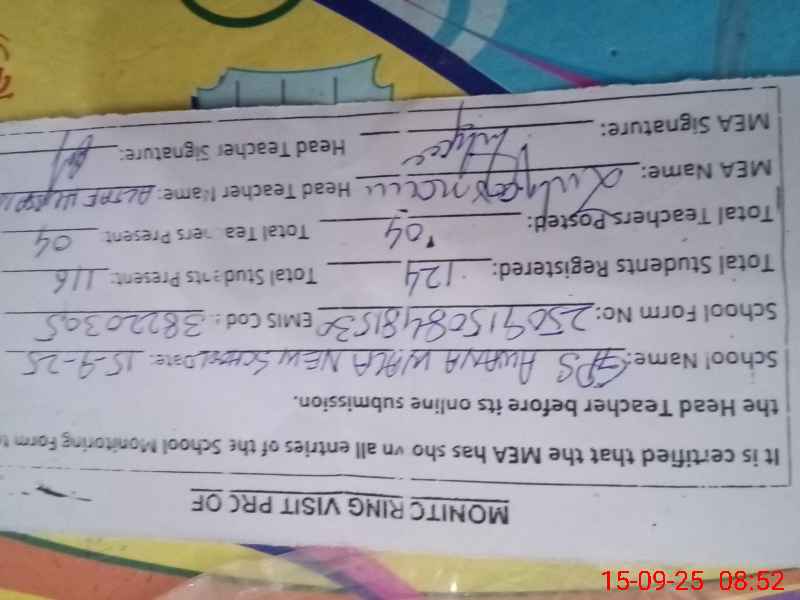 MONITORING VISIT PROOF
It is certified that the MEA has shown all entries of the School Monitoring Form to
the Head Teacher before its online submission.
School Name: GPS AWANA WALA NEW SCHOOL Date: 15-9-25
School Form No: 25091508481530 EMIS Code: 38220305
Total Students Registered: 124 Total Students Present: 116
Total Teachers Posted: 04 Total Teachers Present: 04
MEA Name: Head Teacher Name: ALTAF
MEA Signature: Head Teacher Signature:
15-09-25 08:52